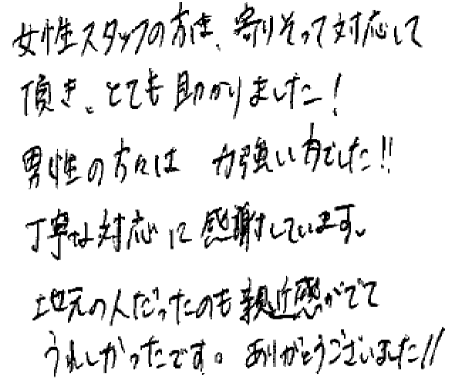 女性スタッフの方は、寄りそって対応して
頂き、とても助かりました！
男性の方々は 力強い方でした!!
丁寧な対応に感謝しています。
地元の人だったのも親近感がでて
うれしかったです。ありがとうございました!!